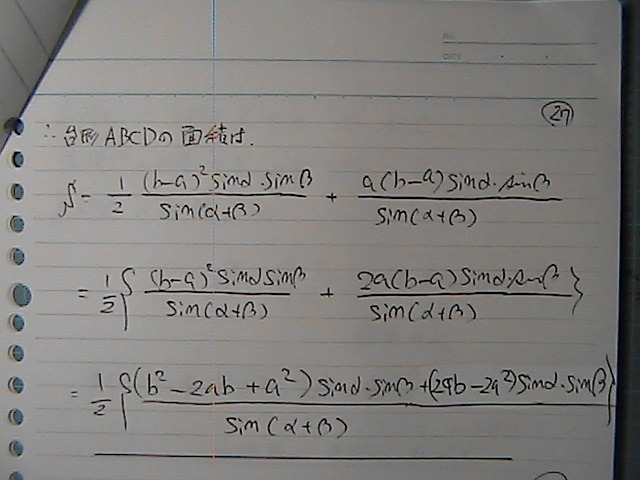 No.
DATE
27
∴台形ABCDの面積は.
S = 1/2 (b-a)² sinα・sinβ / sin(α+β) + a(b-a) sinα・sinβ / sin(α+β)
= 1/2 { (b-a)² sinα sinβ / sin(α+β) + 2a(b-a) sinα・sinβ / sin(α+β) }
= 1/2 { (b² - 2ab + a²) sinα・sinβ + (2ab - 2a²) sinα・sinβ / sin(α+β) }